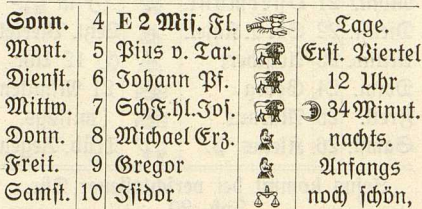 Sonn. 4 E 2 Mis. Fl. Tage.
Mont. 5 Pius v. Tar. Erst. Viertel
Dienst. 6 Johann Pf. 12 Uhr
Mittw. 7 SchF.hl.Jos. 34 Minut.
Donn. 8 Michael Erz. nachts.
Freit. 9 Gregor Anfangs
Samst. 10 Isidor noch schön,